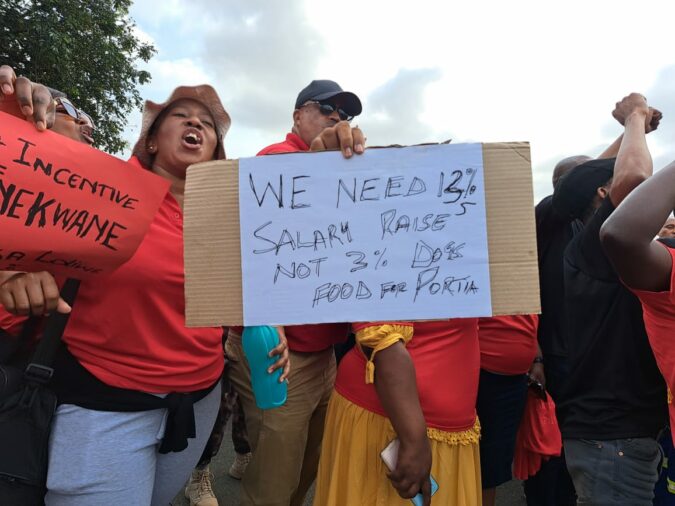 INCENTIVE
NYEKWANE
WE NEED 13%
SALARY RAISES
NOT 3% DOG
FOOD FOR PORTIA